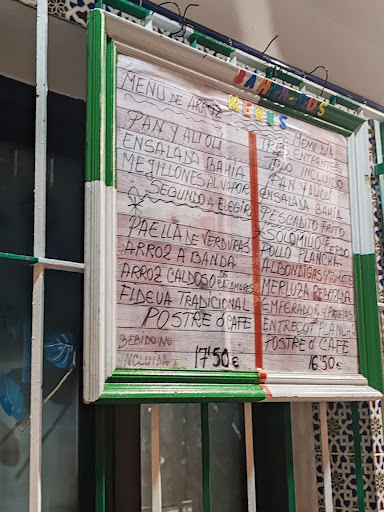 MENUS
MENU DE ARROZ
PAN Y ALIOLI
ENSALADA BAHIA
MEJILLONES AL VAPOR
SEGUNDO A ELEGIR
PAELLA DE VERDURAS
ARROZ A BANDA
ARROZ CALDOSO DE CALAMARES
FIDEUA TRADICIONAL
POSTRE O CAFE
BEBIDA NO
INCLUIDA
17'50€
MENU
ENTRANTE
TODO INCLUIDO
PAN Y ALIOLI
ENSALADA BAHIA
PESCADITO FRITO
SOLOMILLO
POLLO PLANCHA
ALBONDIGAS TOMATE
MERLUZA
EMPERADOR
ENTRECOT PLANCHA
POSTRE O CAFE
16'50€